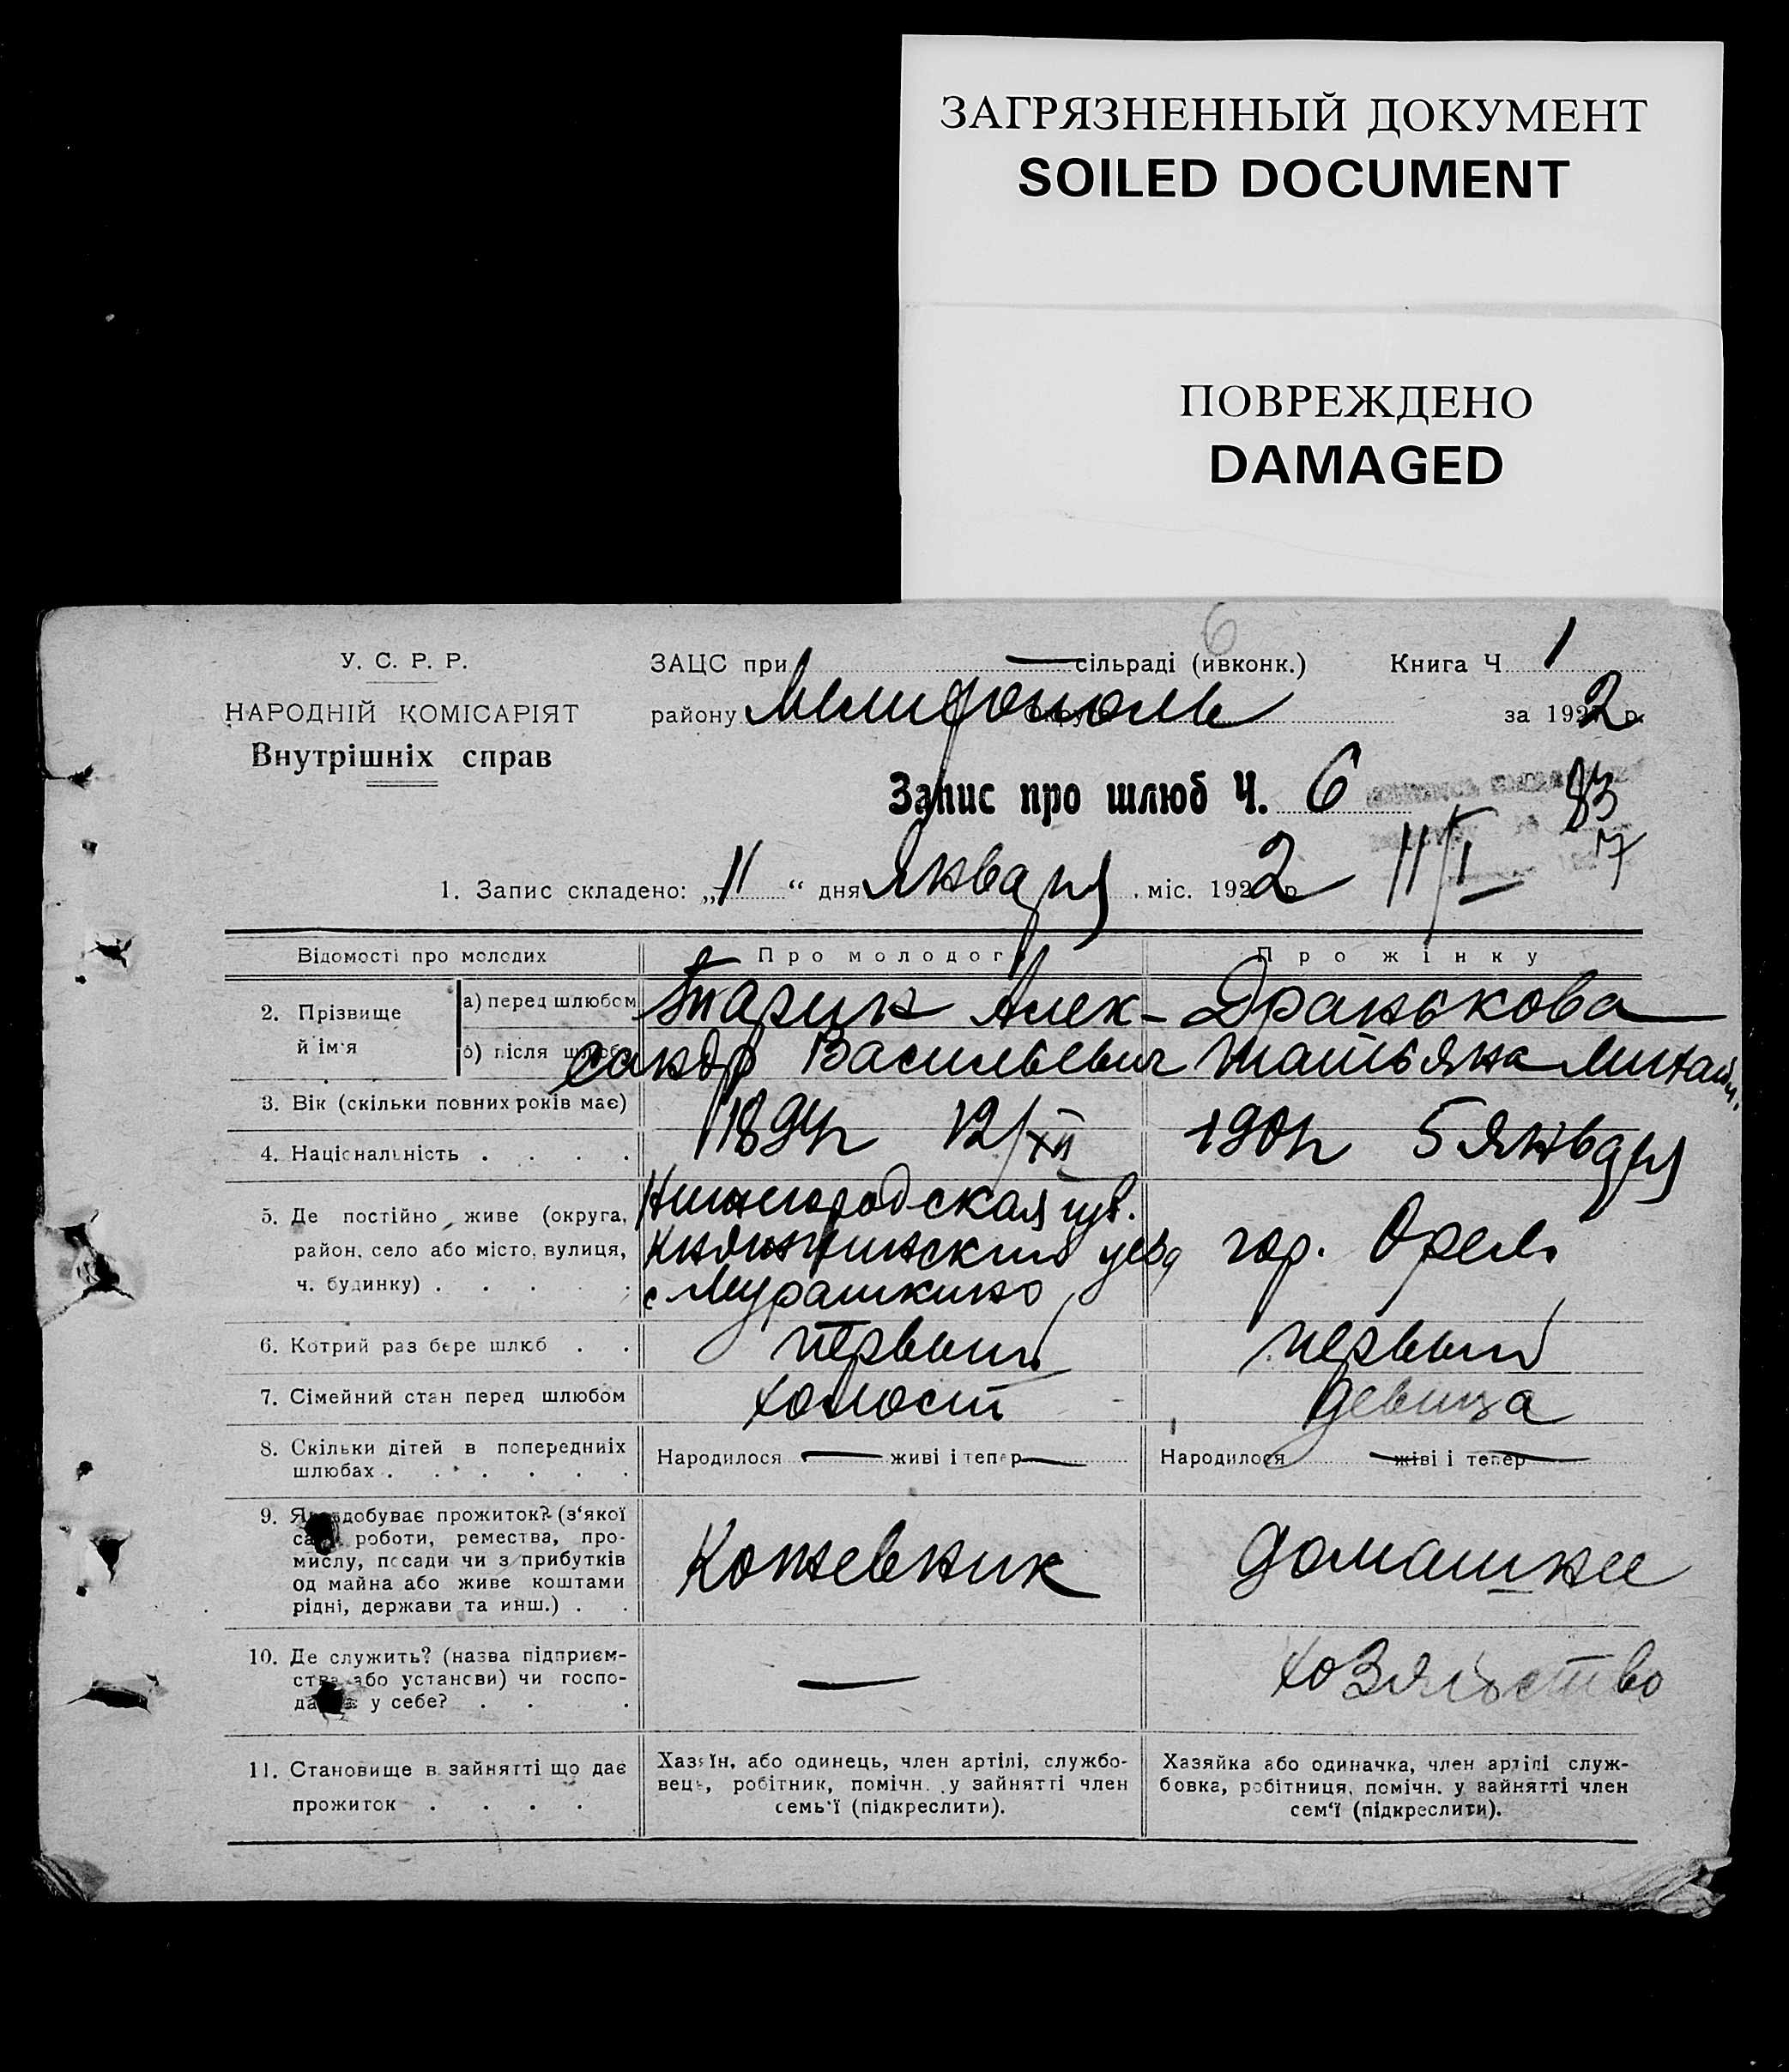 ЗАГРЯЗНЕННЫЙ ДОКУМЕНТ
SOILED DOCUMENT
ПОВРЕЖДЕНО
DAMAGED
6
У. С. Р. Р.
НАРОДНІЙ КОМІСАРІЯТ
Внутрішніх справ
ЗАЦС при — сільраді (ивконк.) Книга Ч 1
району Мелитополь за 1922 р.
Запис про шлюб Ч. 6
83
7
1. Запис складено: „11“ дня Января міс. 1922 р 11/I
Відомості про молодих Про молодого Про жінку
2. Прізвище й ім'я
а) перед шлюбом Тарин Алек- Дранькова
б) після шлюбу сандр Васильевич Татьяна Михайл.
3. Вік (скільки повних років має)
1894г 12/XII 1901г 5 Января
4. Національність . . . .
5. Де постійно живе (округа,
район, село або місто, вулиця,
ч. будинку) . . . .
Нижегородская губ.
Княгининский уезд
с Мурашкино
гор. Орел.
6. Котрий раз бере шлюб . . первый первый
7. Сімейний стан перед шлюбом холост девица
8. Скільки дітей в попередниіх
шлюбах . . . . . .
Народилося — живі і тепер — Народилося — живі і тепер —
9. Як здобуває прожиток? (з'якої
саме роботи, ремества, про-
мислу, посади чи з прибутків
од майна або живе коштами
рідні, держави та инш.) . .
Кожевник домашнее
10. Де служить? (назва підприєм-
ства або установи) чи госпо-
дарює у себе? . . .
— хозяйство
11. Становище в зайнятті що дає
прожиток . . . .
Хазяїн, або одинець, член артілі, службо-
вець, робітник, помічн. у зайнятті член
семь'ї (підкреслити).
Хазяйка або одиначка, член артілі служ-
бовка, робітниця, помічн. у зайнятті член
сем'ї (підкреслити).